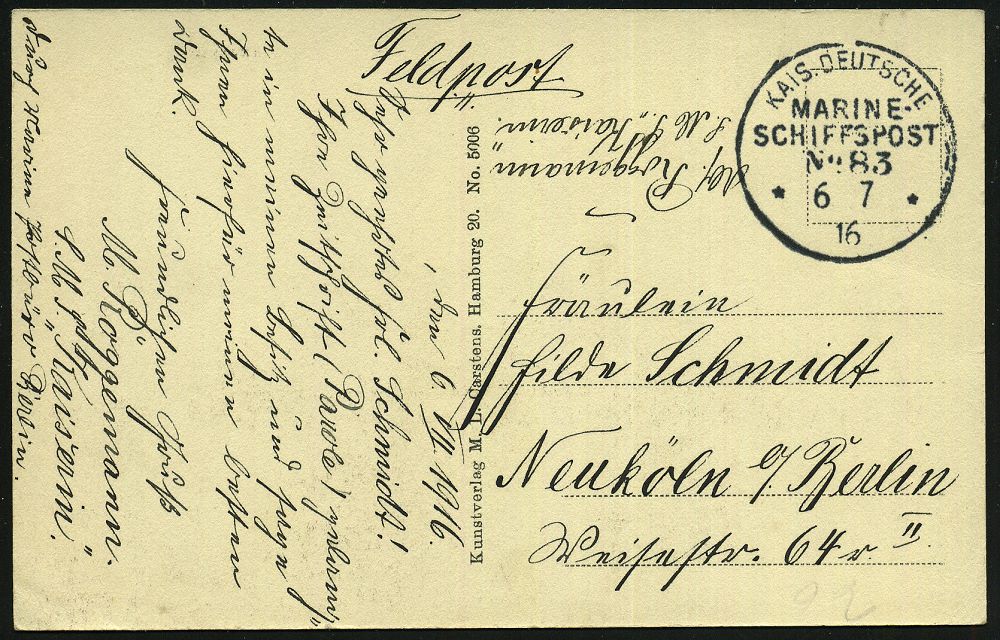 Feldpost
KAIS. DEUTSCHE
MARINE-
SCHIFFSPOST
No. 83
* 6 7 *
16
Abs. Roggemann
S.M.S. „Kaiserin".
Fräulein
Hilde Schmidt
Neuköln b/Berlin
Weisestr. 64 v. II.
Kunstverlag M. L. Carstens. Hamburg 20. No. 5006
, den 6. VII. 1916.
Sehr geehrtes Frl. Schmidt!
Ihre Zuschrift (Parole) gelang=
te in meinen Besitz und sage
Ihnen hierfür meinen besten
Dank.
Freundlichen Gruß
M. Roggemann.
S.M.S. „Kaiserin."
durch Marine Postbüro Berlin.